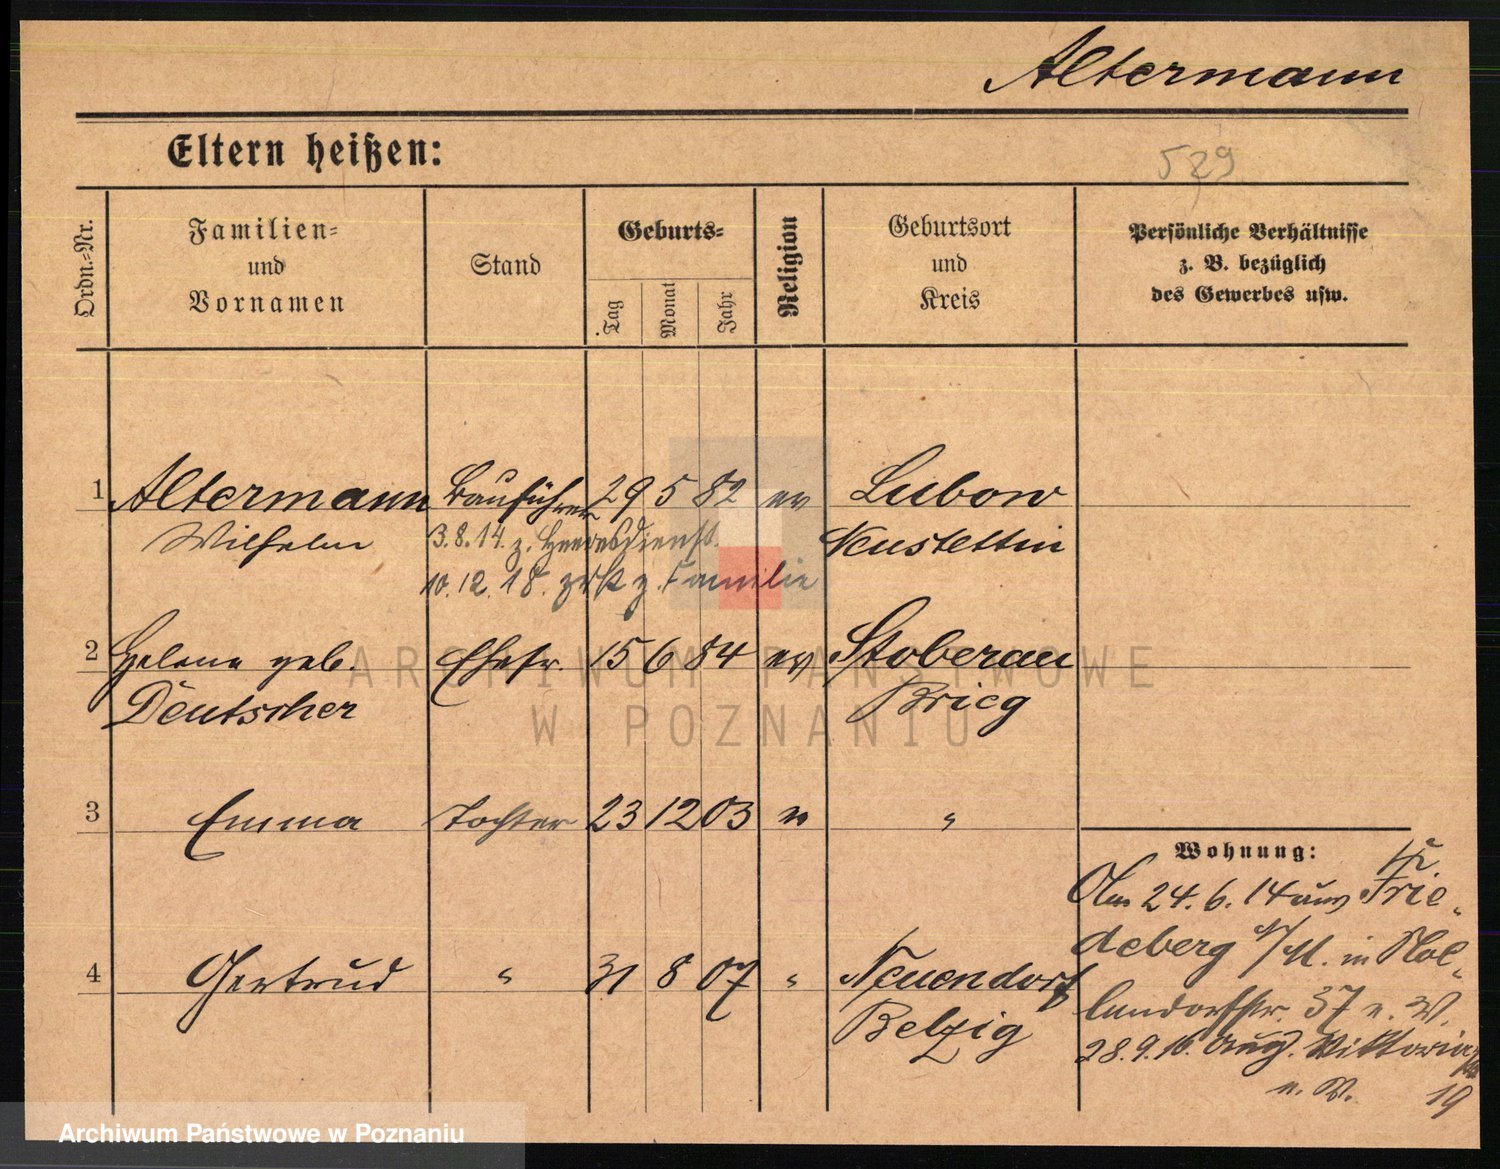 Altermann
Eltern heißen:
529
Ordn.-Nr.
Familien-
und
Vornamen
Stand
Geburts-
Tag
Monat
Jahr
Religion
Geburtsort
und
Kreis
Persönliche Verhältnisse
z. B. bezüglich
des Gewerbes usw.
1 Altermann Bauführer 29 5 82 ev Lubow
Wilhelm 3.8.14. z. Heeresdienst. Neustettin
10.12.18. zrk z. Familie
2 Helene geb. Ehefr. 15 6 84 ev Stoberau
Deutscher Brieg
3 Emma Tochter 23 12 03 " "
Wohnung:
Am 24.6.14 aus Frie-
deberg N/M. in Nol-
4 Gertrud " 31 8 07 " Neuendorf
lendorfstr. 37 n. W.
Belzig
28.9.16. Aug. Viktoria
n. W. 19
ARCHIWUM PAŃSTWOWE
W POZNANIU
Archiwum Państwowe w Poznaniu